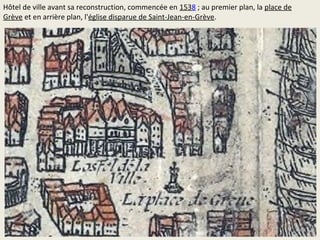 Hôtel de ville avant sa reconstruction, commencée en 1538 ; au premier plan, la place de
Grève et en arrière plan, l'église disparue de Saint-Jean-en-Grève.
Lostel de la
Ville
La place de Greue